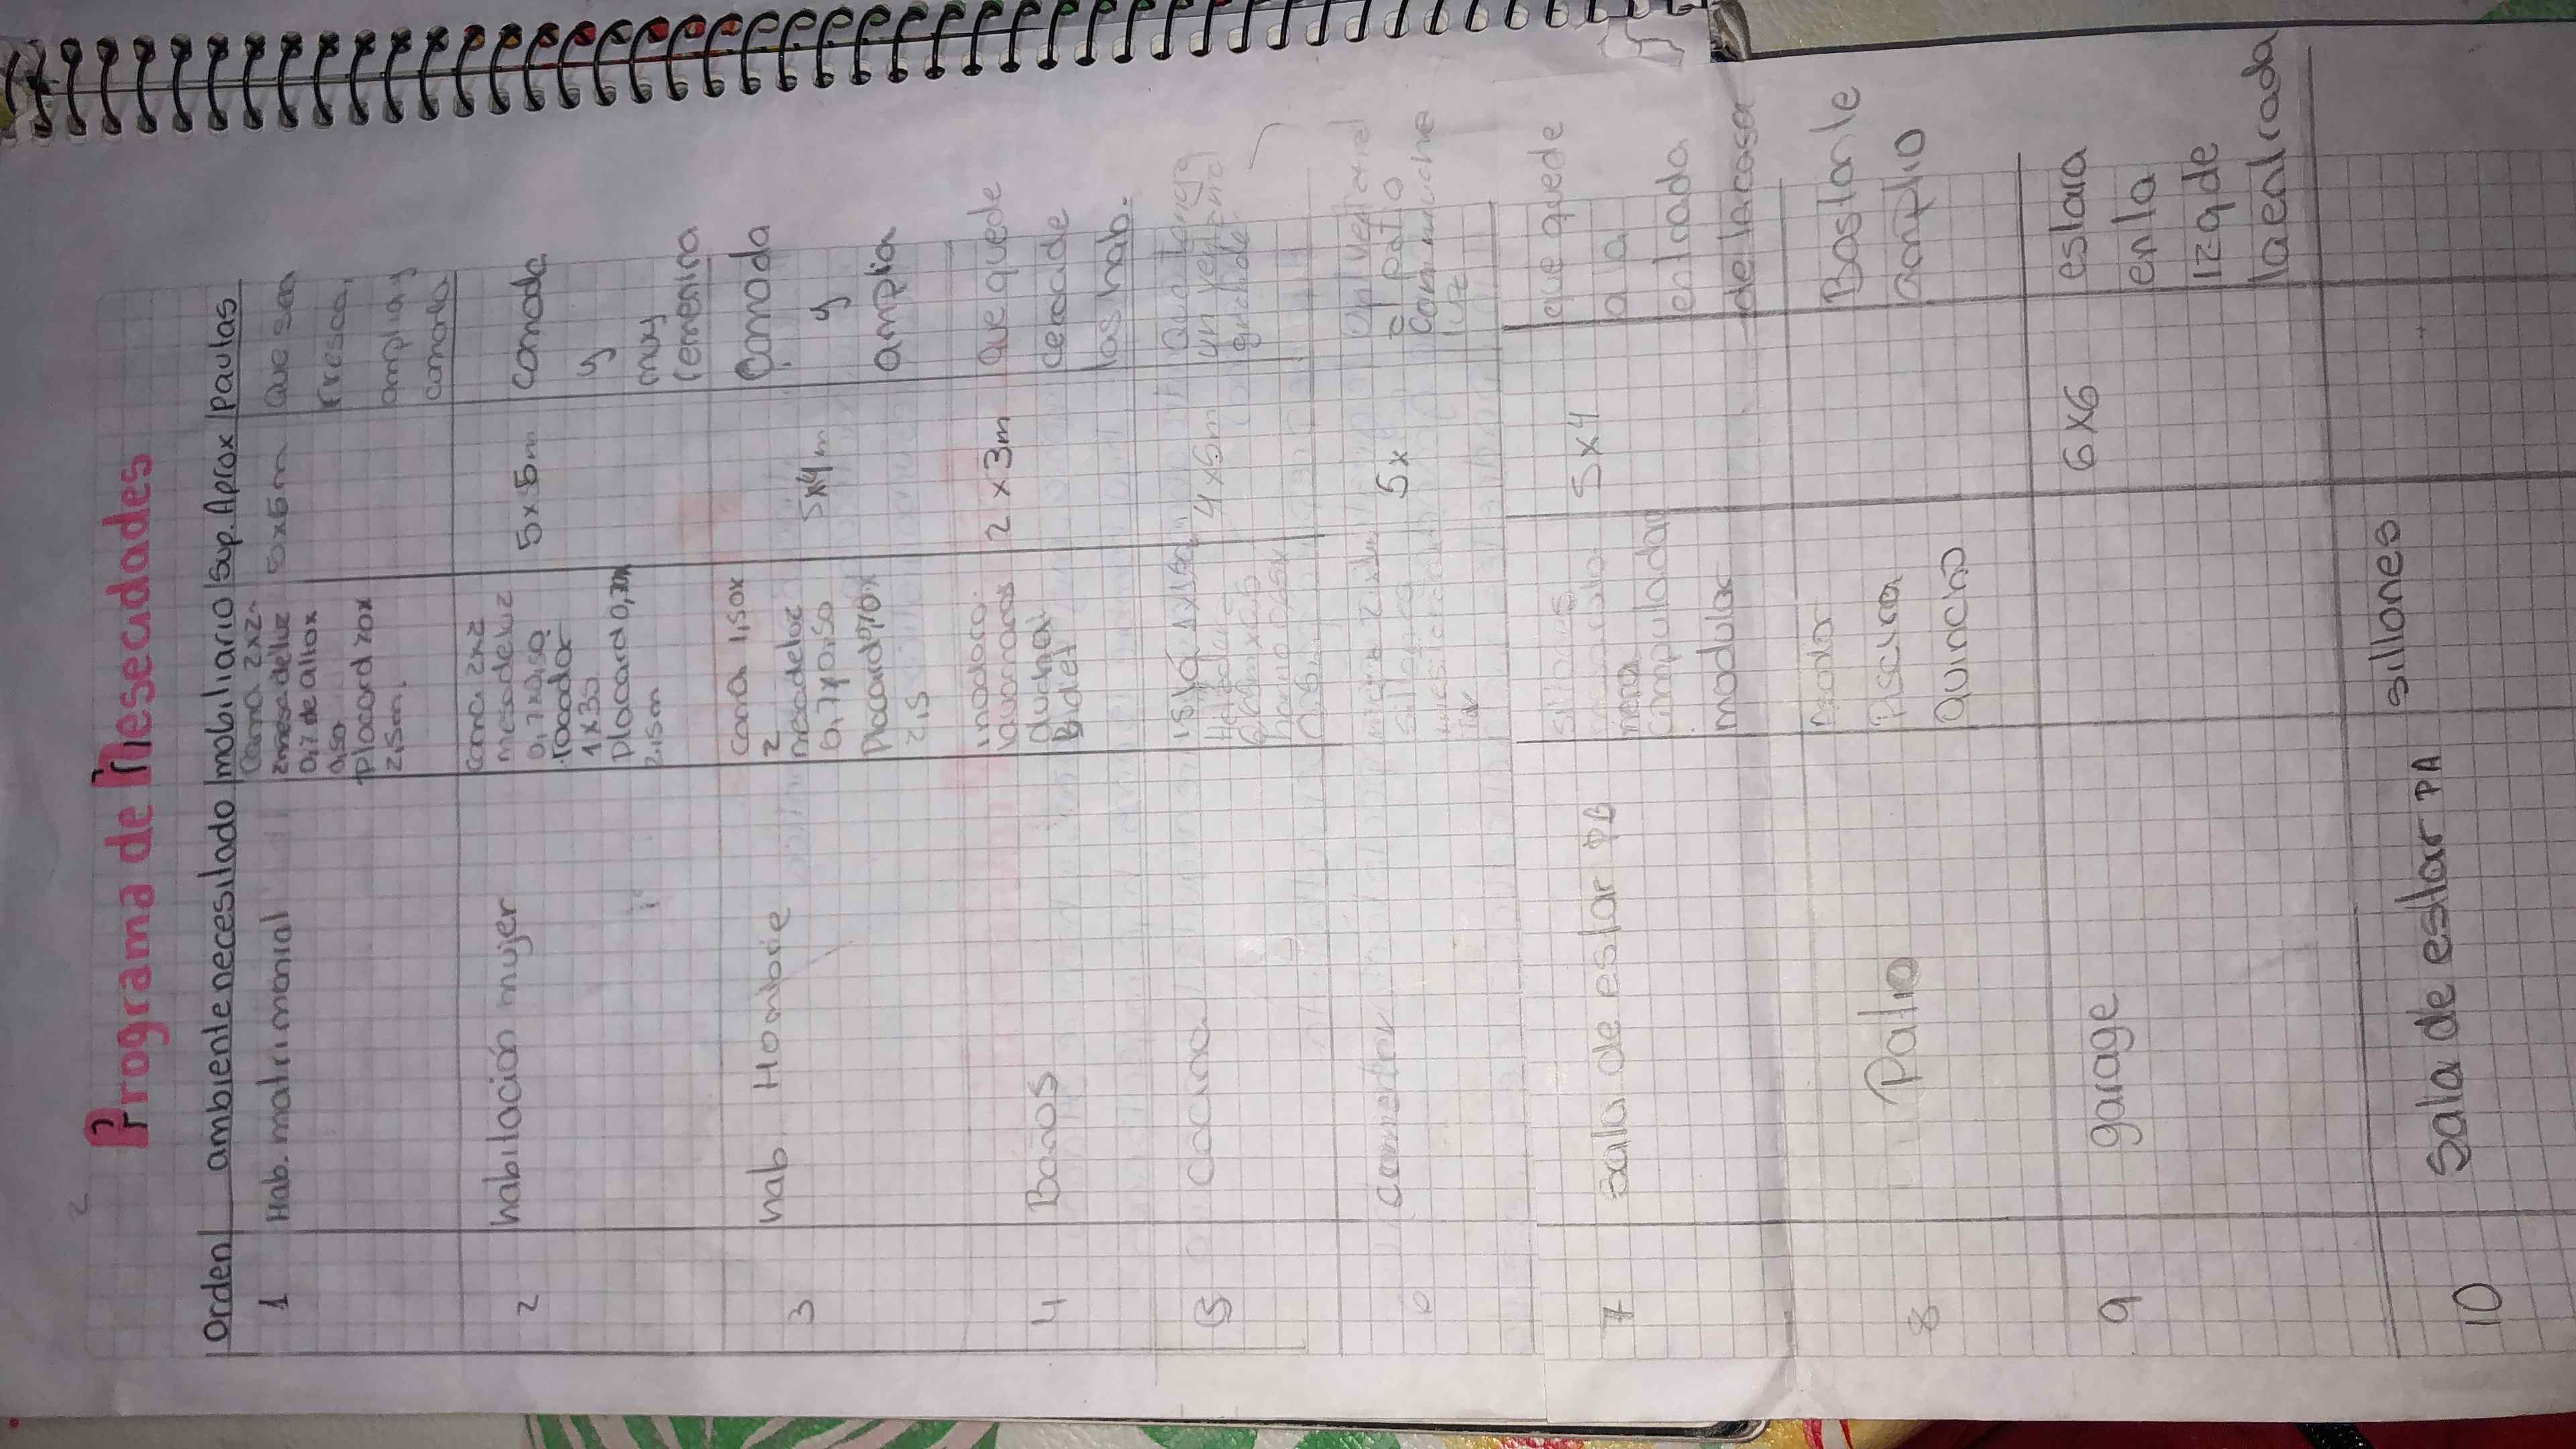 2
Programa de Nesecidades
Orden ambiente necesitado mobiliario Sup. Aprox pautas
1 Hab. matrimonial
Cama 2x2
2 mesa de luz
0,7 de alto x
0,50
placard 70x
2,5m.
5x5m
Que sea
fresca,
amplia y
comoda
2 habitación mujer
cama 2x2
mesa de luz 2
0,7x0,50
.Tocador
1 x 30
placard 0,70x
2,5m
5x5m
comoda
y
muy
femenina
3 hab. Hombre
cama 1,50x
2
mesa de luz
0,7x0,50
Placard 0,70x
2,5
5x4m
Comoda
y
amplia
4 Baños
inodoro.
lavamanos
ducha
Bidet
2 x 3m
que quede
cerca de
las hab.
5 cocina
isla
4x5m
Que tenga
un ventanal
grande
6 comedor
sillones
5x
un ventanal
al patio
con mucha
luz
7 sala de estar PB
sillones
mesa
computadora
modular
5x4
que quede
a la
entrada
de la casa
8 Patio
Piscina
Quincho
Bastante
amplio
9 garage
6x6
estara
en la
izq de
la entrada
10 Sala de estar PA sillones